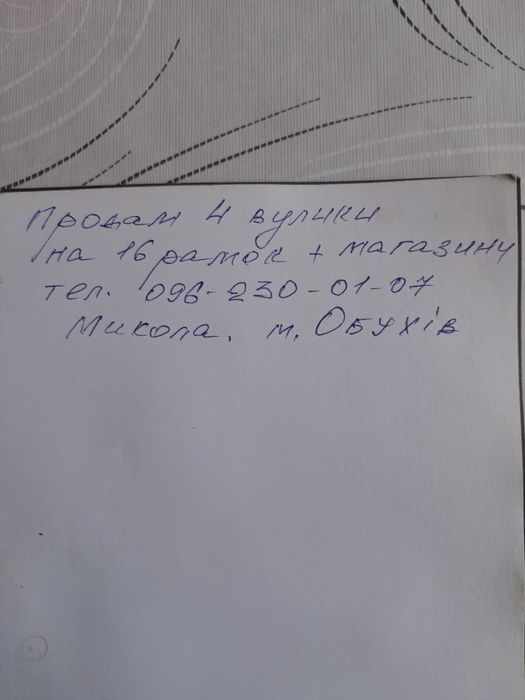 Продам 4 вулики
на 16 рамок + магазину
тел. 096-230-01-07
Микола. м. Обухів